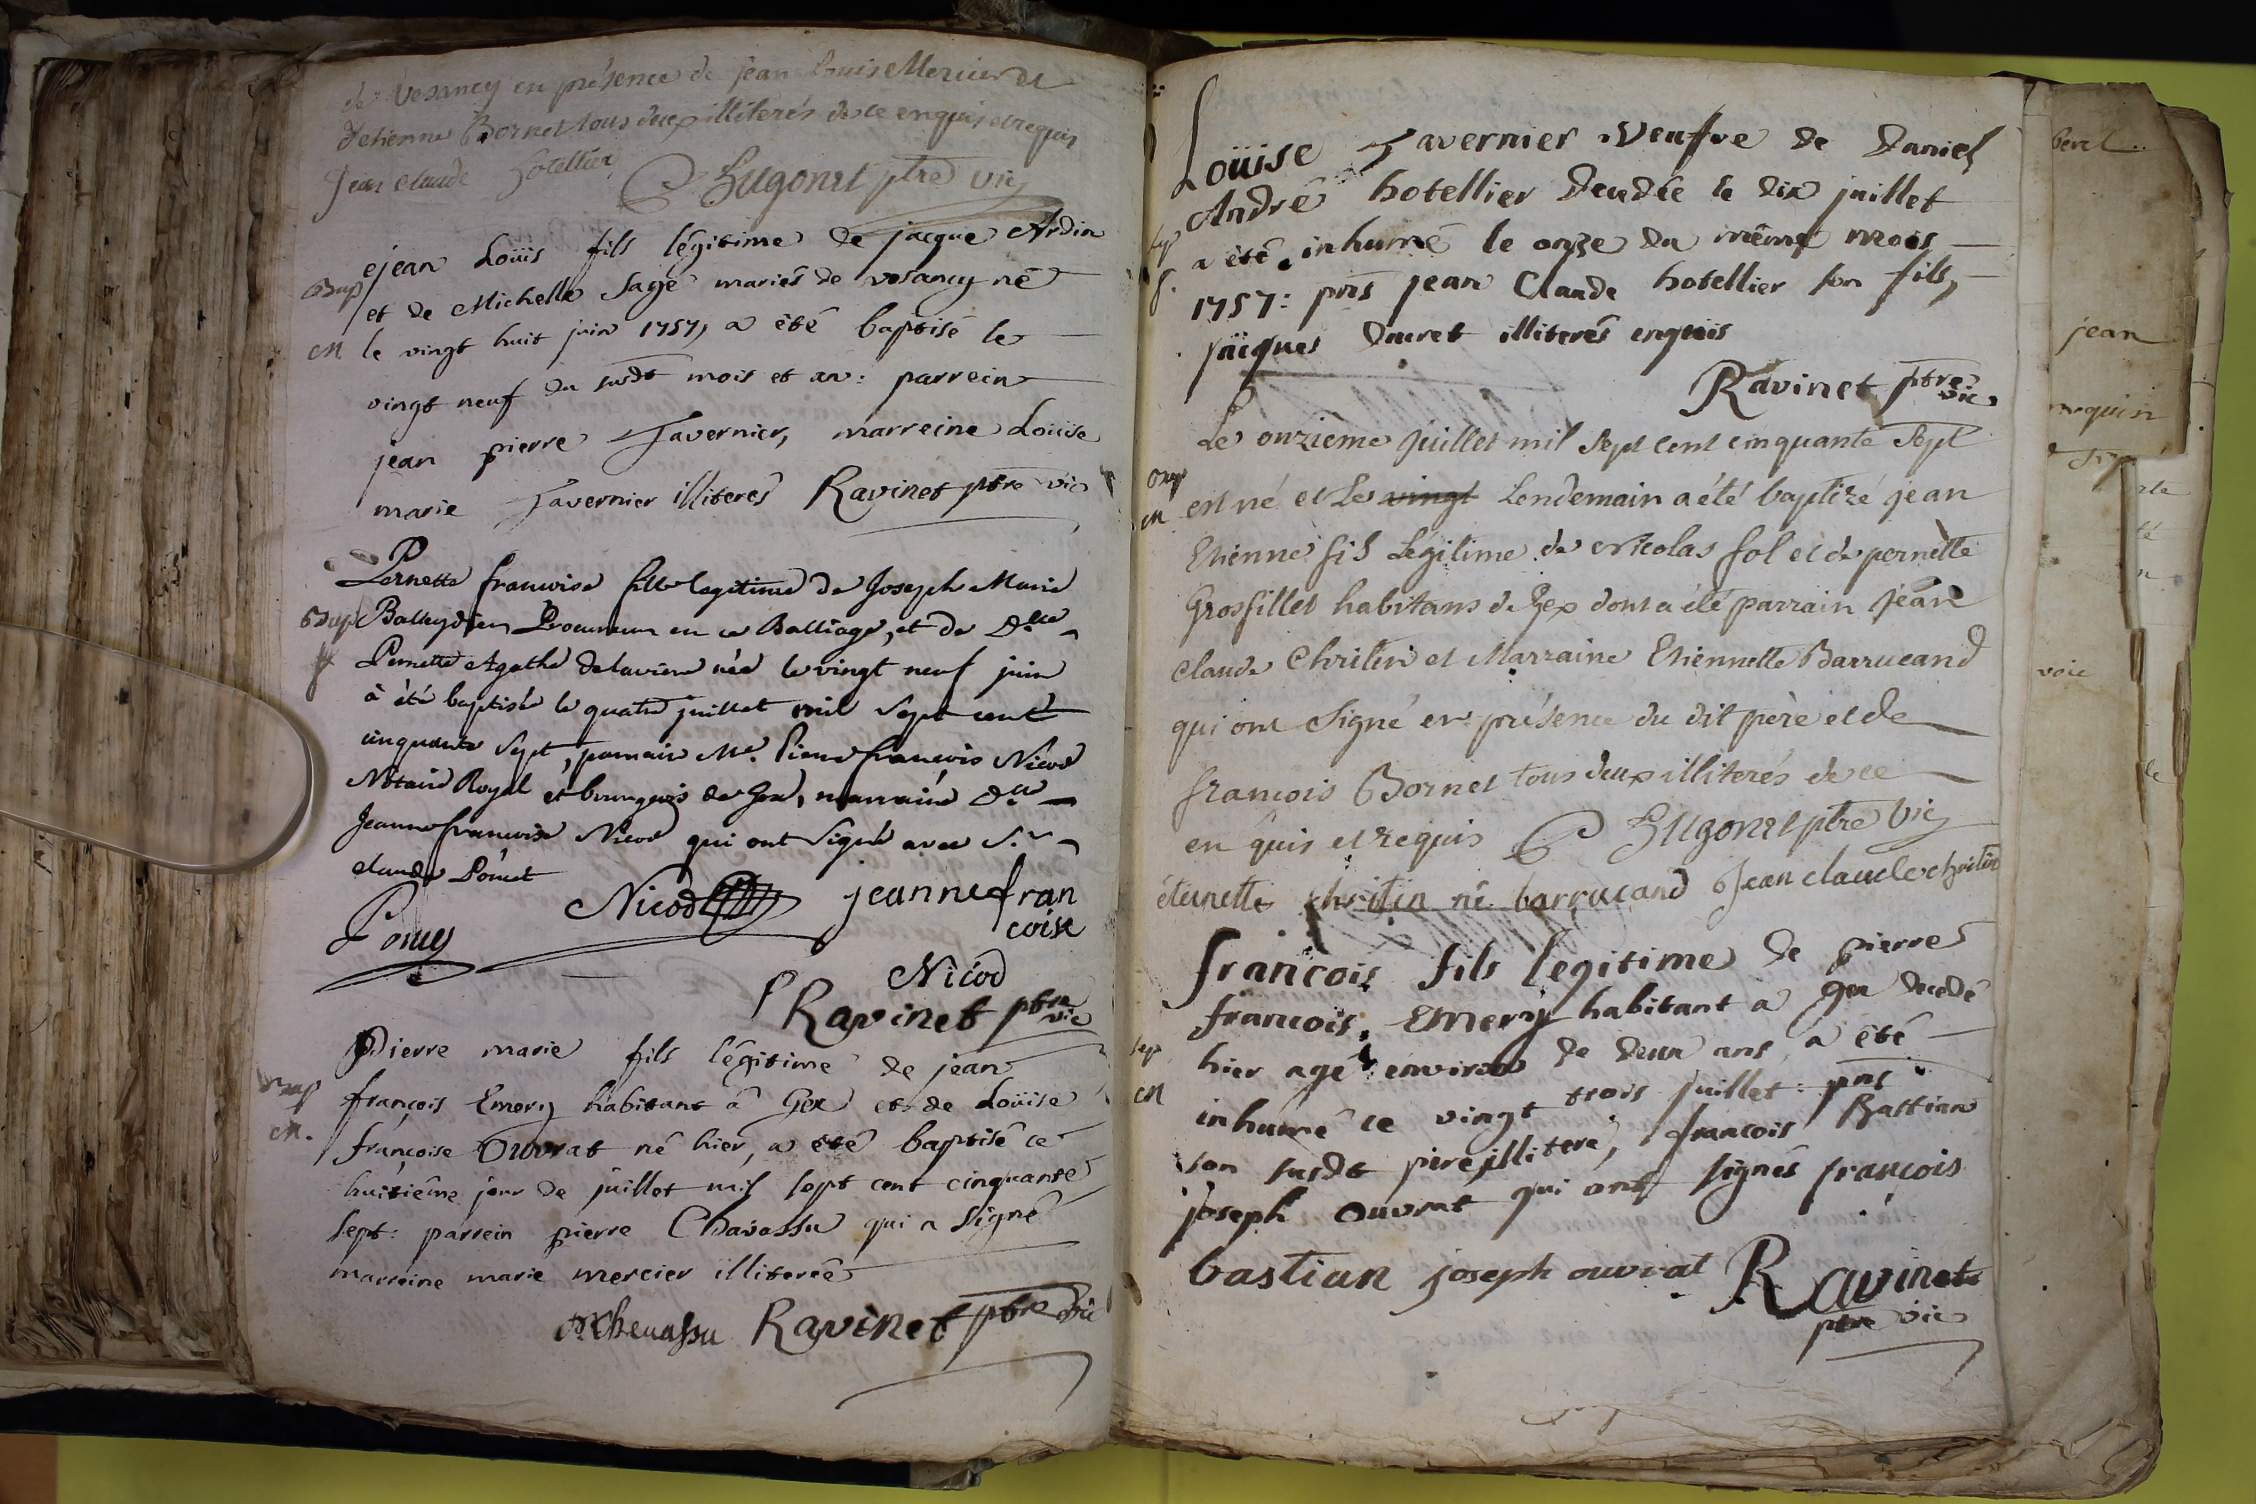 de Vesancy en présence de jean Louis Mercier et
d'etienne Bornet tous deux illiterés de ce enquis et requis
Jean claude hotellier C Hugonet ptre vic
jean Loüis fils légitime de jacque Ardin
Bap et de Michelle Sage mariés de vesancy né
M le vingt huit juin 1757, a été baptisé le
vingt neuf du susdt mois et an : parrein
jean pierre Tavernier, marreine Loüise
marie Tavernier illiterés Ravinet ptre vic
Pernette francoise fille legitime de Joseph Marie
Bap Balleydier Procureur en ce Balliage, et de Dlle
f Pernette Agathe delaviere née le vingt neuf juin
à été baptisée le quatre juillet mil sept cent
cinquante sept, parrain Me. Pierre francois Nicod
Notaire Royal et bourgeois de Gex, marraine Dlle
Jeanne francoise Nicod qui ont signé avec Sr
claude
Nicod jeanne fran
coise
Nicod
Ravinet ptre vic
Pierre marie fils légitime de jean
Bap françois Emery habitant à Gex et de Loüise
M. françoise Ouvrat né hier, a été baptisé ce
huitième jour de juillet mil sept cent cinquante
sept : parrein pierre Chavassu qui a signé
marreine marie mercier illiterée
chevassu Ravinet ptre vic
Loüise Tavernier Veufve de Daniel
André hotellier decedée le dix juillet
sep a été inhumé le onze du même mois
f. 1757 : pns jean Claude hotellier son fils,
jäcques Ducret illiterés enquis
Ravinet ptre vic
Le onzieme Juillet mil sept cent cinquante sept
Bap est né et Le vingt Lendemain a été baptizé jean
M Etienne fils Légitime de Nicolas fol et de pernette
Grosfillet habitans de Gex dont a été parrain jean
claude Christin et Marraine Etiennette Barrucand
qui ont signé en présence du dit père et de
francois Bornet tous deux illiterés de ce
en quis et requis C Hugonet ptre Vic
éteinette christin né barrucand Jean claude christin
françois fils legitime de pierre
françois Emery habitant a gex decedé
sep hier agé environ de deux ans a été
M inhumé ce vingt trois juillet : pns
son susdt pere illiteré, francois Bastian
joseph Ouvrat qui ont signés françois
bastian joseph ouvrat Ravinet
ptre vic
berd
jean
voie